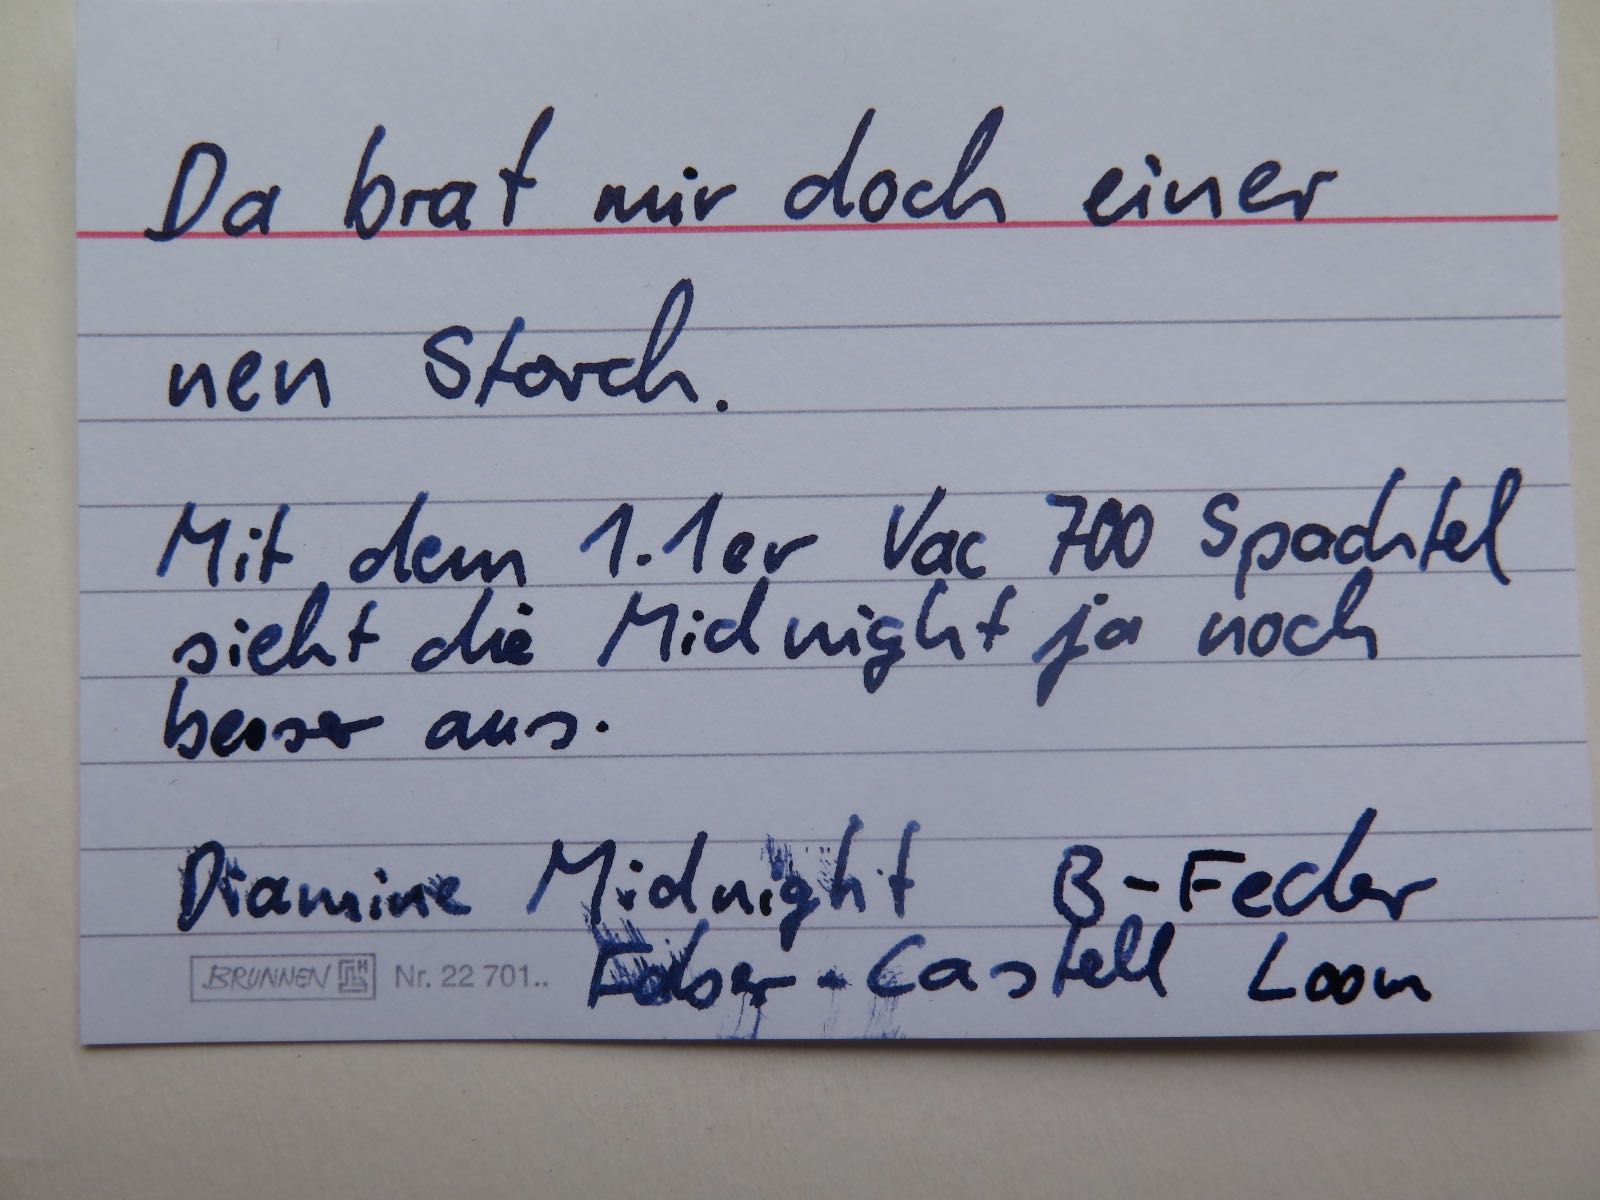 Da brat mir doch einer
nen Storch.
Mit dem 1.1er Vac 700 Spachtel
sieht die Midnight ja noch
besser aus.
Diamine Midnight B-Feder
Faber-Castell Loom
BRUNNEN Nr. 22 701..